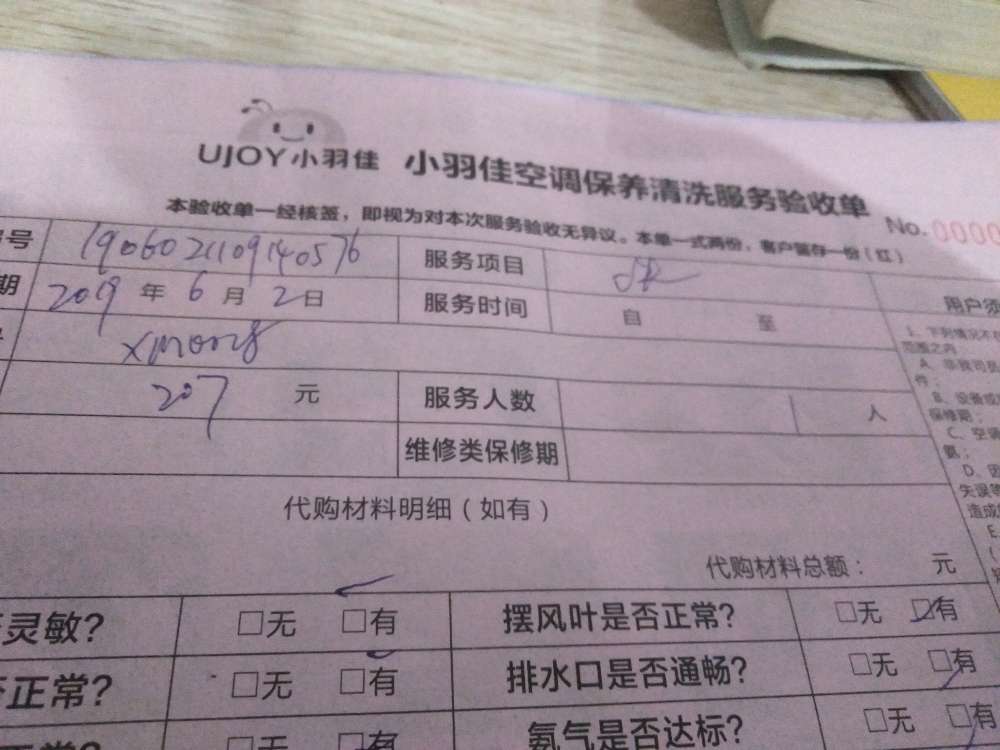 UJOY小羽佳 小羽佳空调保养清洗服务验收单
本验收单一经核签，即视为对本次服务验收无异议。本单一式两份，客户留存一份（红）
No.0000
号 1906021109140576 服务项目
期 2019 年 6 月 2 日 服务时间 自 至 用户须
207 元 服务人数 人
维修类保修期
代购材料明细（如有）
代购材料总额： 元
灵敏? □无 □有 摆风叶是否正常? □无 □有
正常? □无 □有 排水口是否通畅? □无 □有
□无 □有 氨气是否达标? □无 □有
1、下列情况不
范围之内
A、非我司员
件；
B、设备或
保修期；
C、空调
氨；
D、因
失误等
造成
E